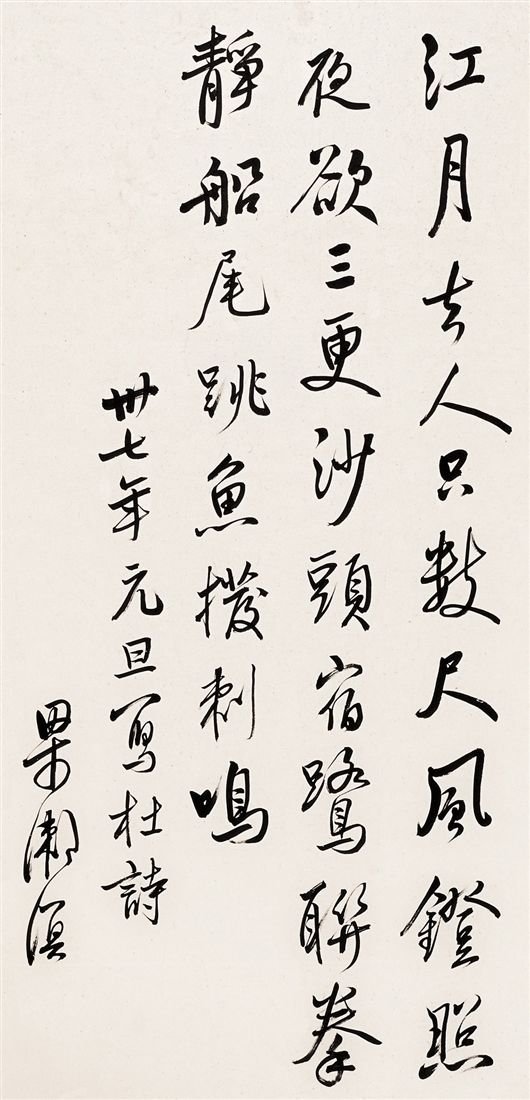 江月去人只數尺風鐙照
夜欲三更沙頭宿鷺聯拳
靜船尾跳魚撥刺鳴
卅七年元旦寫杜詩
梁漱溟